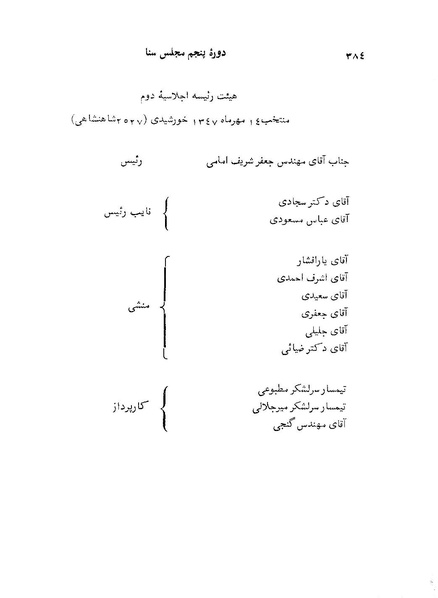 ۳۸٤ دورهٔ پنجم مجلس سنا
هیئت رئیسه اجلاسیهٔ دوم
منتخب ۱٤ مهرماه ۱۳٤۷ خورشیدی (۲۵۲۷ شاهنشاهی)
جناب آقای مهندس جعفر شریف امامی رئیس
آقای دکتر سجادی
آقای عباس مسعودی
نایب رئیس
آقای یارافشار
آقای اشرف احمدی
آقای سعیدی
آقای جعفری
آقای جلیلی
آقای دکتر ضیائی
منشی
تیمسار سرلشکر مطبوعی
تیمسار سرلشکر میرجلالی
آقای مهندس گنجی
کارپرداز